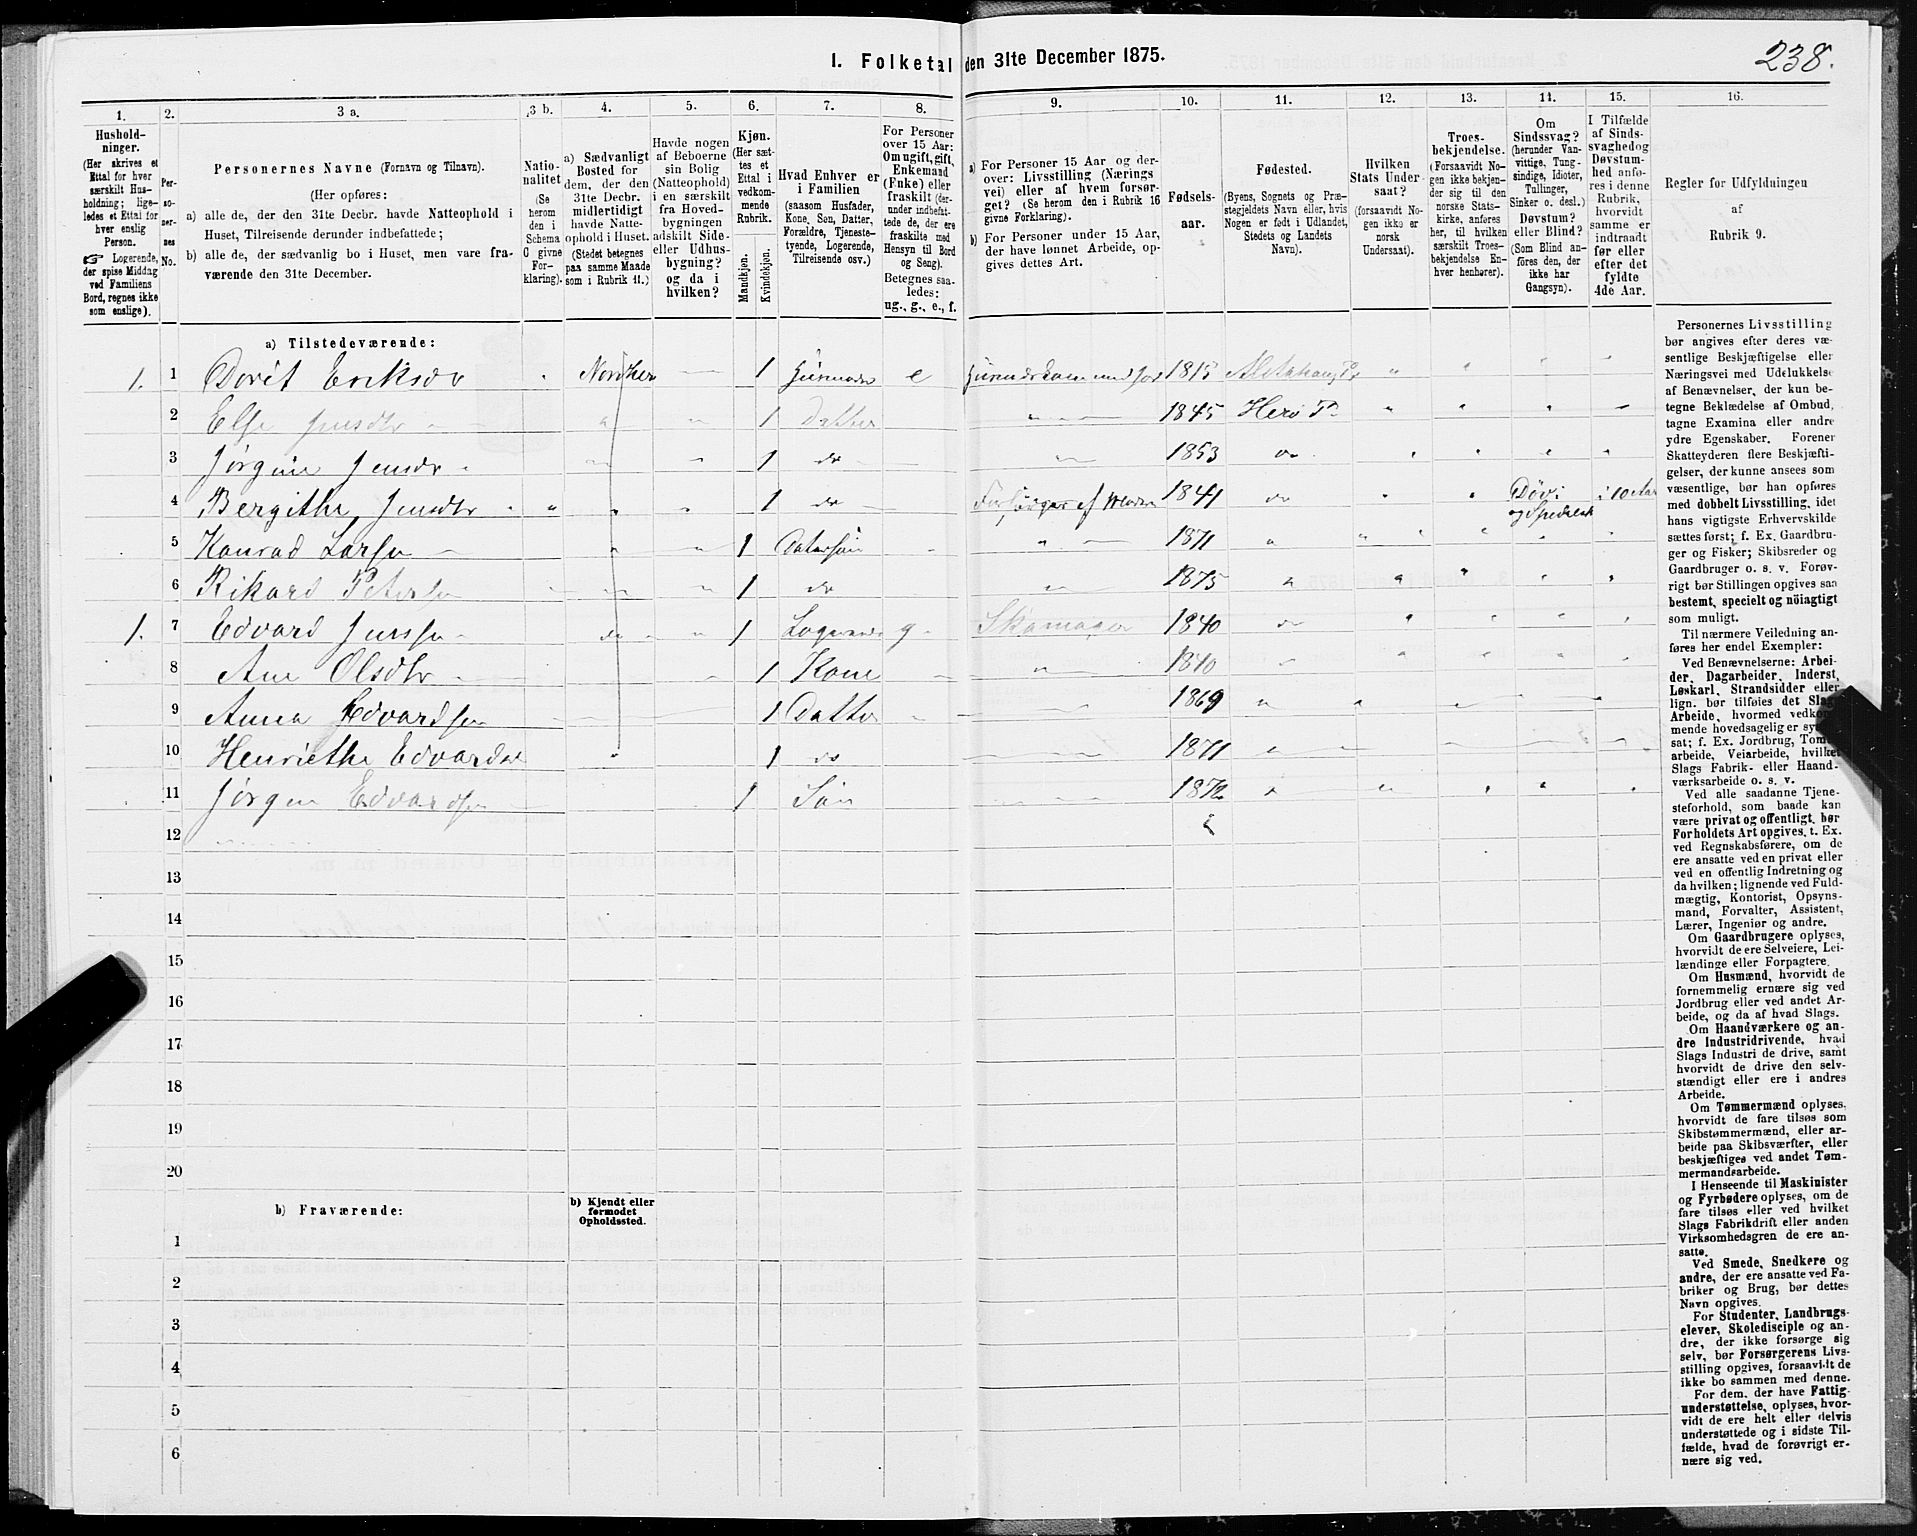 238.
I. Folketal den 31te December 1875.
1. 2. 3 a. 3 b. 4. 5. 6. 7. 8. 9. 10. 11. 12. 13. 14. 15. 16.
Hushold-
ninger.
(Her skrives et
Ettal for hver
særskilt Hus-
holdning; lige-
ledes et Ettal for
hver enslig
Person.
☞ Logerende,
der spise Middag
ved Familiens
Bord, regnes ikke
som enslige).
Per-
so-
ner-
nes
No.
Personernes Navne (Fornavn og Tilnavn).
(Her opføres:
a) alle de, der den 31te Decbr. havde Natteophold i
Huset, Tilreisende derunder indbefattede;
b) alle de, der sædvanlig bo i Huset, men vare fra-
værende den 31te December.
Natio-
nalitet
(Se
herom
den i
Schema
C givne
For-
klaring).
a) Sædvanligt
Bosted for
dem, der den
31te Decbr.
midlertidigt
havde Natte-
ophold i Huset.
(Stedet betegnes
paa samme Maade
som i Rubrik 11.)
Havde nogen
af Beboerne
sin Bolig
(Natteophold)
i en særskilt
fra Hoved-
bygningen
adskilt Side-
eller Udhus-
bygning?
og da i
hvilken?
Kjøn.
(Her sæt-
tes et
Ettal i
vedkom-
mende
Rubrik.
Mandkjøn.
Kvindekjøn.
Hvad Enhver er
i Familien
(saasom Husfader,
Kone, Søn, Datter,
Forældre, Tjeneste-
tyende, Logerende,
Tilreisende osv.)
For Personer
over 15 Aar:
Om ugift, gift,
Enkemand
(Enke) eller
fraskilt (der-
under indbefat-
tede de, der ere
fraskilte med
Hensyn til Bord
og Seng).
Betegnes saa-
ledes:
ug., g., e., f.
a) For Personer 15 Aar og der-
over: Livsstilling (Nærings
vei) eller af hvem forsør-
get? (Se herom den i Rubrik 16
givne Forklaring).
b) For Personer under 15 Aar,
der have lønnet Arbeide, op-
gives dettes Art.
Fødsels-
aar.
Fødested.
(Byens, Sognets og Præ-
stegjeldets Navn eller, hvis
Nogen er født i Udlandet,
Stedets og Landets
Navn).
Hvilken
Stats Under-
saat?
(forsaavidt No-
gen ikke er
norsk
Undersaat).
Troes-
bekjendelse.
(Forsaavidt No-
gen ikke bekjen-
der sig til den
norske Stats-
kirke, anføres
her, til hvilken
særskilt Troes-
bekjendelse En-
hver henhører).
Om
Sindssvag?
(herunder Van-
vittige, Tung-
sindige, Idioter,
Tullinger,
Sinker o. desl.)
Døvstum?
eller Blind?
(Som Blind an-
føres den, der
ikke har
Gangsyn).
I Tilfælde
af Sinds-
svaghed og
Døvstum-
hed anfø-
res i denne
Rubrik,
hvorvidt
samme er
indtraadt
før eller
efter det
fyldte
4de Aar.
Regler for Udfyldningen
af
Rubrik 9.
a) Tilstedeværende:
1. 1 Dorit Eriksdr 1 e 1815
2 Else Jensdtr 1 Datter 1845 Herø P
3 Jørgine Jensdr 1 do 1853 do
4 Bergithe Jensdtr 1 do Forsørges af Moderen 1841 do Døv i 10 Aar
og Spedalsk
5 Konrad Larsen 1 Datersøn 1871
6 Rikard Petersen 1 do 1875
1. 7 Edvard Jenssen do 1 Logerende g Skomager 1840 do
8 Ane Olsdtr 1 Kone 1840
9 Anna Edvardsen 1 Datter 1869
10 Henriethe Edvardse 1 do 1871
11 Jørgen Edvardsen 1 Søn 1872
12
13
14
15
16
17
18
19
20
b) Fraværende:
b) Kjendt eller
formodet
Opholdssted.
1
2
3
4
5
6
Personernes Livsstilling
bør angives efter deres væ-
sentlige Beskjæftigelse eller
Næringsvei med Udelukkelse
af Benævnelser, der kun be-
tegne Beklædelse af Ombud,
tagne Examina eller andre
ydre Egenskaber. Forener
Skatteyderen flere Beskjæfti-
gelser, der kunne ansees som
væsentlige, bør han opføres
med dobbelt Livsstilling, idet
hans vigtigste Erhvervskilde
sættes først; f. Ex. Gaardbru-
ger og Fisker; Skibsreder og
Gaardbruger o. s. v. Forøv-
rigt bør Stillingen opgives saa
bestemt, specielt og nöiagtigt
som muligt.
Til nærmere Veiledning an-
føres her endel Exempler:
Ved Benævnelserne: Arbei-
der, Dagarbeider, Inderst,
Løskarl, Strandsidder eller
lign. bør tilføies det Slags
Arbeide, hvormed vedkom-
mende hovedsagelig er sys-
sat; f. Ex. Jordbrug, Tom
arbeide, Veiarbeide, hvilket
Slags Fabrik- eller Haand-
værksarbeide o. s. v.
Ved alle saadanne Tjene-
steforhold, som baade kan
være privat og offentligt, bør
Forholdets Art opgives, t. Ex.
ved Regnskabsførere, om de
ere ansatte ved en privat eller
ved en offentlig Indretning og
da hvilken; lignende ved Fuld-
mægtig, Kontorist, Opsyns-
mand, Forvalter, Assistent,
Lærer, Ingeniør og andre.
Om Gaardbrugere oplyses,
hvorvidt de ere Selveiere, Lei-
lændinge eller Forpagtere.
Om Husmænd, hvorvidt de
fornemmelig ernære sig ved
Jordbrug eller ved andet Ar-
beide, og da af hvad Slags.
Om Haandværkere og an-
dre Industridrivende, hvad
Slags Industri de drive, samt
hvorvidt de drive den selv-
stændigt eller ere i andres
Arbeide.
Om Tømmermænd oplyses,
hvorvidt de fare tilsøs som
Skibstømmermænd, eller ar-
beide paa Skibsværfter, eller
beskjæftiges ved andet Tøm-
mermandsarbeide.
I Henseende til Maskinister
og Fyrbødere oplyses, om de
fare tilsøs eller ved hvilket
Slags Fabrikdrift eller anden
Virksomhedsgren de ere an-
satte.
Ved Smede, Snedkere og
andre, der ere ansatte ved Fa-
briker og Brug, bør dettes
Navn opgives.
For Studenter, Landbrugs-
elever, Skoledisciple og an-
dre, der ikke forsørge sig
selv, bør Forsørgerens Livs-
stilling opgives, forsaavidt de
ikke bo sammen med denne.
For dem, der have Fattig-
understøttelse, oplyses, hvor-
vidt de ere helt eller delvis
understøttede og i sidste Til-
fælde, hvad de forøvrigt er-
nære sig ved.